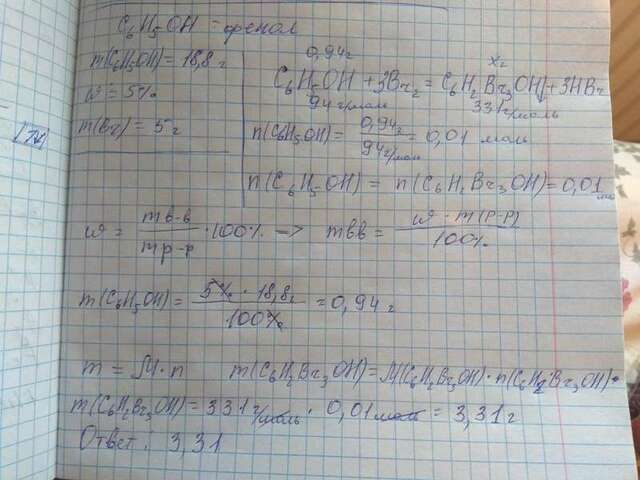 C6H5OH = фенол
m(C6H5OH) = 18,8 г
ω = 5%
m(Br) = 5 г
0,94г x г
C6H5OH + 3Br2 = C6H2Br3OH↓ + 3HBr
94 г/моль 331 г/моль
n(C6H5OH) = 0,94г / 94 г/моль = 0,01 моль
n(C6H5OH) = n(C6H2Br3OH) = 0,01 моль
ω = m в-в / m р-р · 100% -> m вв = ω · m(р-р) / 100%
m(C6H5OH) = 5% · 18,8г / 100% = 0,94 г
m = M · n m(C6H2Br3OH) = M(C6H2Br3OH) · n(C6H2Br3OH) =
m(C6H2Br3OH) = 331 г/моль · 0,01 моль = 3,31 г
Ответ: 3,31